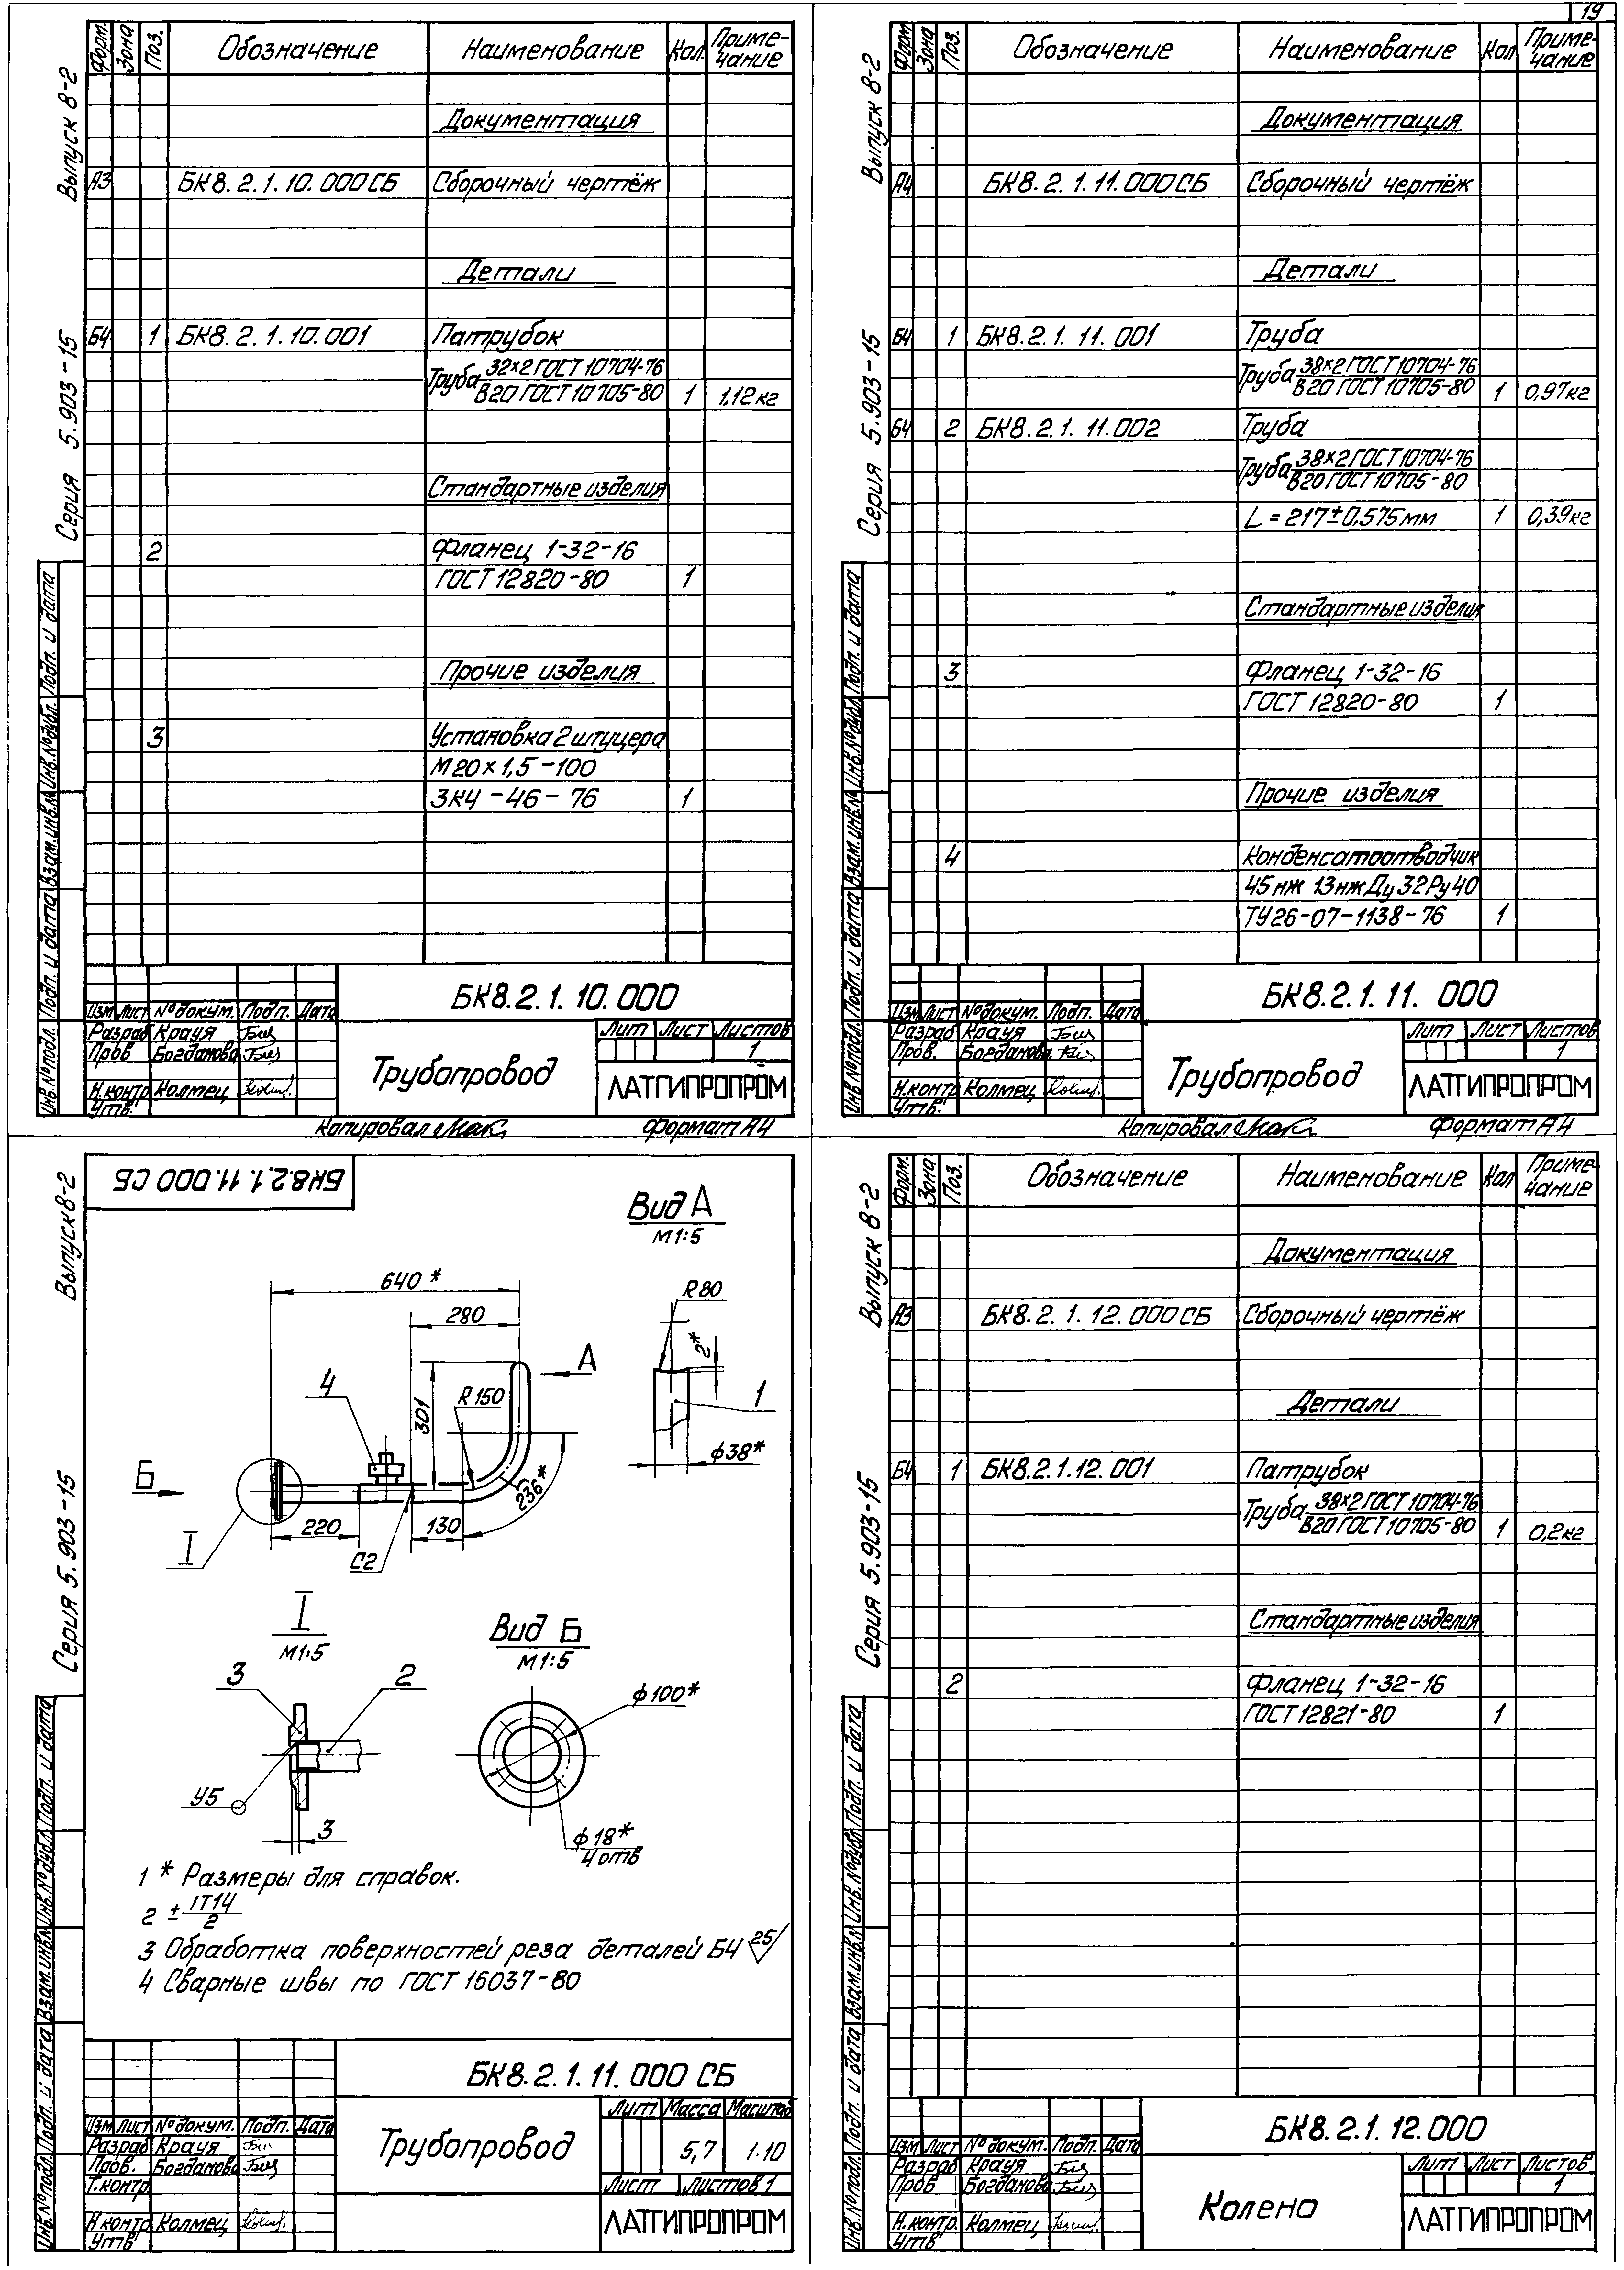 19
Выпуск 8-2
Серия 5.903-15
Форм. Зона Поз. Обозначение Наименование Кол. Приме-чание
Документация
А3 БК8.2.1.10.000СБ Сборочный чертёж
Детали
Б4 1 БК8.2.1.10.001 Патрубок
Труба 32×2 ГОСТ 10704-76
В20 ГОСТ 10705-80 1 1,12кг
Стандартные изделия
2 Фланец 1-32-16
ГОСТ 12820-80 1
Прочие изделия
3 Установка 2 штуцера
М20×1,5-100
ЗК4-46-76 1
Инв.№подл. Подп. и дата Взам.инв.№ Инв.№дубл. Подп. и дата
БК8.2.1.10.000
Изм Лист №докум. Подп. Дата
Разраб Крауя
Пров Богданова
Н.контр Колмец
Утв.
Трубопровод
Лит Лист Листов
1
ЛАТГИПРОПРОМ
Копировал Формат А4
Выпуск 8-2
Серия 5.903-15
Форм. Зона Поз. Обозначение Наименование Кол Приме-чание
Документация
А4 БК8.2.1.11.000СБ Сборочный чертёж
Детали
Б4 1 БК8.2.1.11.001 Труба
Труба 38×2 ГОСТ 10704-76
В20 ГОСТ 10705-80 1 0,97кг
Б4 2 БК8.2.1.11.002 Труба
Труба 38×2 ГОСТ 10704-76
В20 ГОСТ 10705-80
L=217±0,575мм 1 0,39кг
Стандартные изделия
3 Фланец 1-32-16
ГОСТ 12820-80 1
Прочие изделия
4 Конденсатоотводчик
45нж 13нж Ду 32 Ру 40
ТУ26-07-1138-76 1
Инв.№подл. Подп. и дата Взам.инв.№ Инв.№дубл. Подп. и дата
БК8.2.1.11.000
Изм Лист №докум. Подп. Дата
Разраб Крауя
Пров. Богданова
Н.контр Колмец
Утв.
Трубопровод
Лит Лист Листов
1
ЛАТГИПРОПРОМ
Копировал Формат А4
Выпуск 8-2
Серия 5.903-15
БК8.2.1.11.000 СБ
Вид А
М1:5
640*
280
R80
2*
А
4
301
R150
1
ф38*
Б
236*
220
130
I
С2
I
М1:5
Вид Б
М1:5
3
2
ф100*
У5
3
ф18*
4 отв
1 * Размеры для справок.
2 ± IT14
2
3 Обработка поверхностей реза деталей Б4 25
4 Сварные швы по ГОСТ 16037-80
Инв.№подл. Подп. и дата Взам.инв.№ Инв.№дубл. Подп. и дата
БК8.2.1.11.000 СБ
Изм Лист №докум. Подп. Дата
Разраб Крауя
Пров. Богданова
Т.контр.
Н.контр Колмец
Утв
Трубопровод
Лит Масса Масштаб
5,7 1:10
Лист Листов 1
ЛАТГИПРОПРОМ
Выпуск 8-2
Серия 5.903-15
Форм. Зона Поз. Обозначение Наименование Кол Приме-чание
Документация
А3 БК8.2.1.12.000СБ Сборочный чертёж
Детали
Б4 1 БК8.2.1.12.001 Патрубок
Труба 38×2 ГОСТ 10704-76
В20 ГОСТ 10705-80 1 0,2кг
Стандартные изделия
2 Фланец 1-32-16
ГОСТ 12821-80 1
Инв.№подл. Подп. и дата Взам.инв.№ Инв.№дубл Подп. и дата
БК8.2.1.12.000
Изм Лист №докум. Подп. Дата
Разраб Крауя
Пров Богданова
Н.контр. Колмец
Утв
Колено
Лит Лист Листов
1
ЛАТГИПРОПРОМ